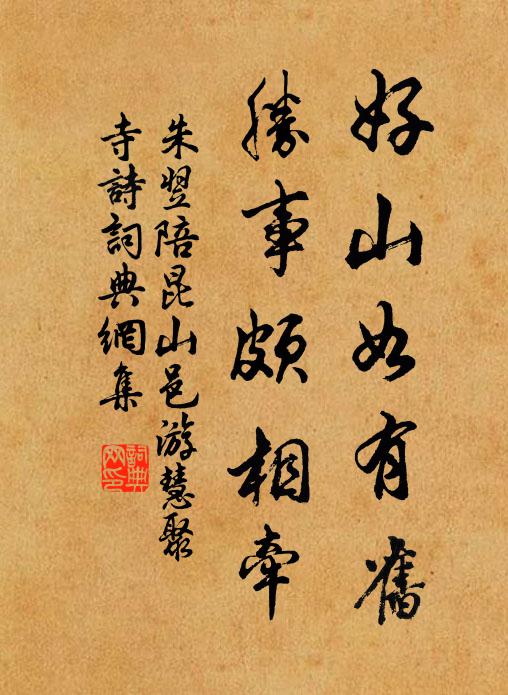 好山如有舊
勝事頗相牽
朱翌陪昆山邑游慧聚
寺詩詞典網集
詞典網印